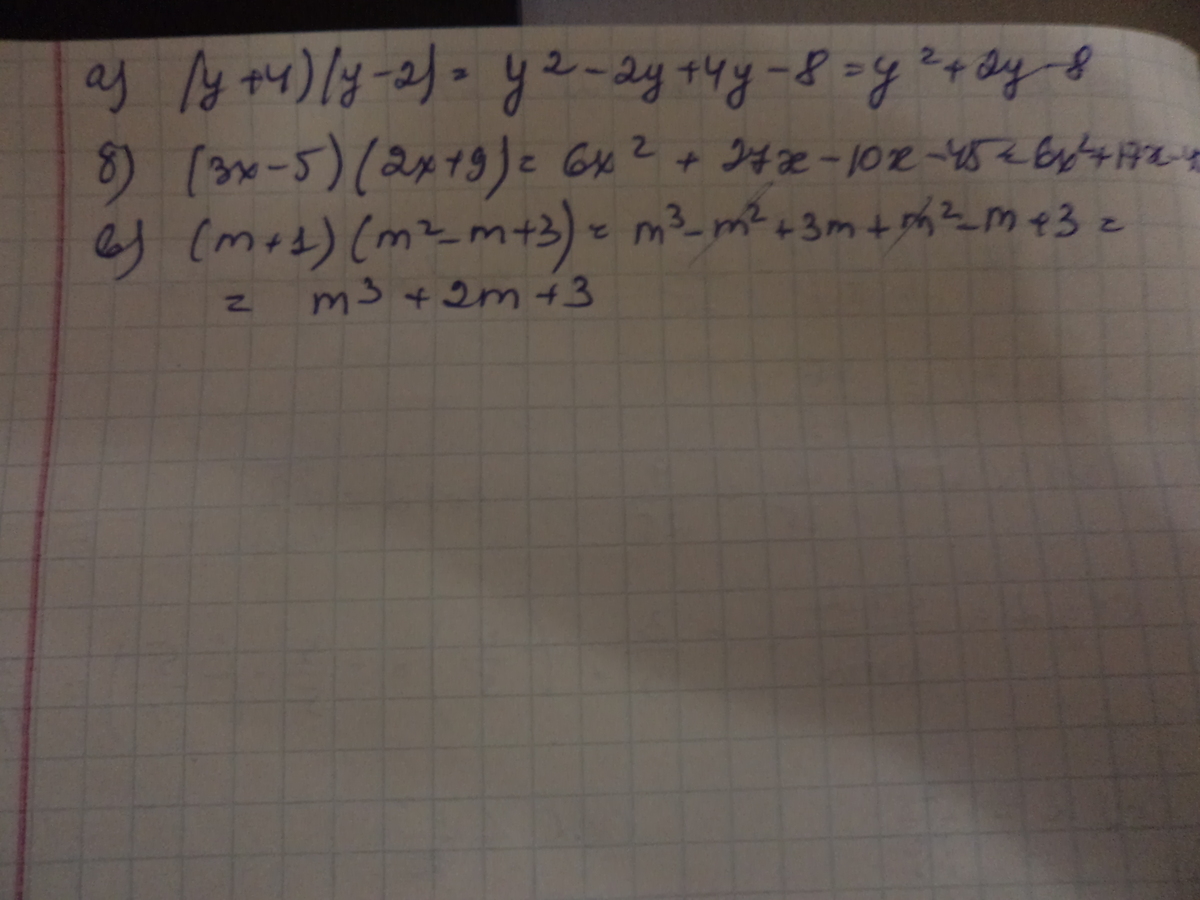 а) (y+4)(y-2)= y²-2y+4y-8=y²+2y-8
б) (3x-5)(2x+9)= 6x² + 27x-10x-45=6x²+17x-4
в) (m+1)(m²-m+3)= m³-m²+3m+m²-m+3=
= m³+2m+3